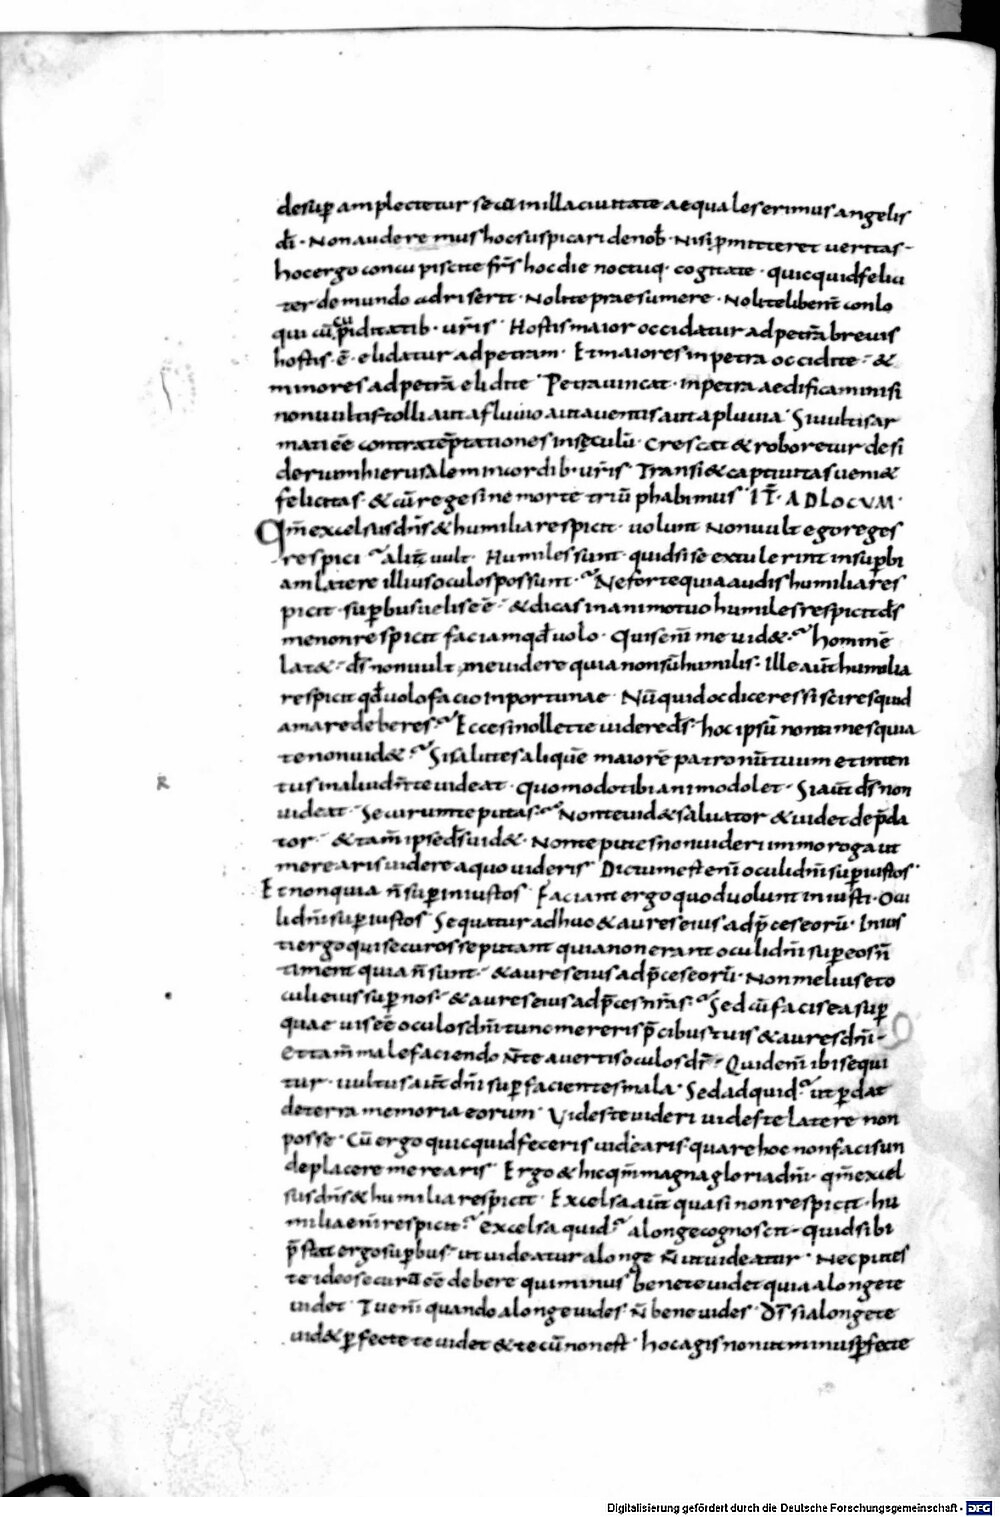 desup amplectetur se cū in illa ciuitate aequales erimus angelis
dī · Non auderemus hoc suspicari de nob̄ · Nisi pmitteret ueritas ·
hoc ergo concupiscite frs̄ hoc die noctuq· cogitate · quicquid felici
ter do mundo adriserit · Nolite praesumere · Nolite libent̄ conlo
qui cū cupiditatib· ur̄is · Hostis maior occidatur ad petrā breuis
hostis · ē · elidatur ad petram · Et maiores in petra occidite · &
minores ad petrā elidite · Petra uincat · in petra aedificamini si
non uultis tolli aut a fluuio aut a uentis aut a pluuia · Si uultis ar
mati eē contra tēptationes in sęculū · Crescat & roboretur desi
derium hierusalem in cordib· ur̄is · Transi& captiuitas ueni&
felicitas · & cū rege sine morte triūphabimus · IT̄ · AD LOCVM ·
Qm̄ excelsus dn̄s & humilia respicit · uolunt Non uult ego reges
respici · aliт̄ uult · Humiles sunt · quid si se extulerint in supbi
am latere illius oculos possunt · Ne forte quia audis humilia res
picit · supbus uelis eē · & dicas in animo tuo humiles respicit ds̄
me non respicit faciam qd̄ uolo · Quis enī me uid& · hominē
lat& · ds̄ non uult me uidere quia non sū humilis · Ille aūt humilia
respicit qd̄ uolo facio inportunae · Nūquid oc diceres si scires quid
amare deberes · Ecce si nollet te uidere ds̄ · hoc ipsū non times quia
te non uid& · Si salutes aliquē maiorē patronū tuum et inten
tus in aliud n̄ te uideat · Quomodo tibi animo dolet · Si aūt ds̄ non
uideat · Securum te putas · Non te uid& saluator & uidet depda
tor · & tam̄ ipse ds̄ uid& · Non te putes non uideri immo roga ut
merearis uidere a quo uideris · Dictum est enī oculi dn̄i sup iustos ·
Et non quia n̄ sup iniustos · Faciant ergo quod uolunt iniusti · Ocu
li dn̄i sup iustos · Sequatur adhuc & aures eius ad pces eorū · Inius
ti ergo qui securos se putant quia non erant oculi dn̄i super eos n̄
timent quia n̄ sunt · & aures eius ad pces eorū · Non melius et o
culi eius sup nos · & aures eius ad pces nr̄as · Sed cū facis ea sup
quae uis eē oculos dn̄i tunc mereris pcibus tuis & aures dn̄i ·
et tam̄ male faciendo n̄ te auertis oculos dī · Quid enī ibi sequi
tur · uultus aūt dn̄i sup facientes mala · Sed ad quid · ut pdat
de terra memoria eorum · Vides te uideri uides te latere non
posse · Cū ergo quicquid feceris uidearis · quare hoc non facis un
de placere merearis · Ergo & hic qm̄ magna gloria dn̄i · qm̄ excel
sus dn̄s & humilia respicit · Excelsa aūt quasi non respicit · hu
milia enī respicit · excelsa quid · a longe cognoscit · quid sibi
pstat ergo supbus · ut uideatur a longe n̄ ut uideatur · Nec putes
te ideo securū eē debere qui minus bene te uidet quia a longe te
uidet · Tu enī quando a longe uides · n̄ bene uides · Ds̄ si a longe te
uid& pfecte te uidet & tecū non est · hoc agis non ut minus pfecte